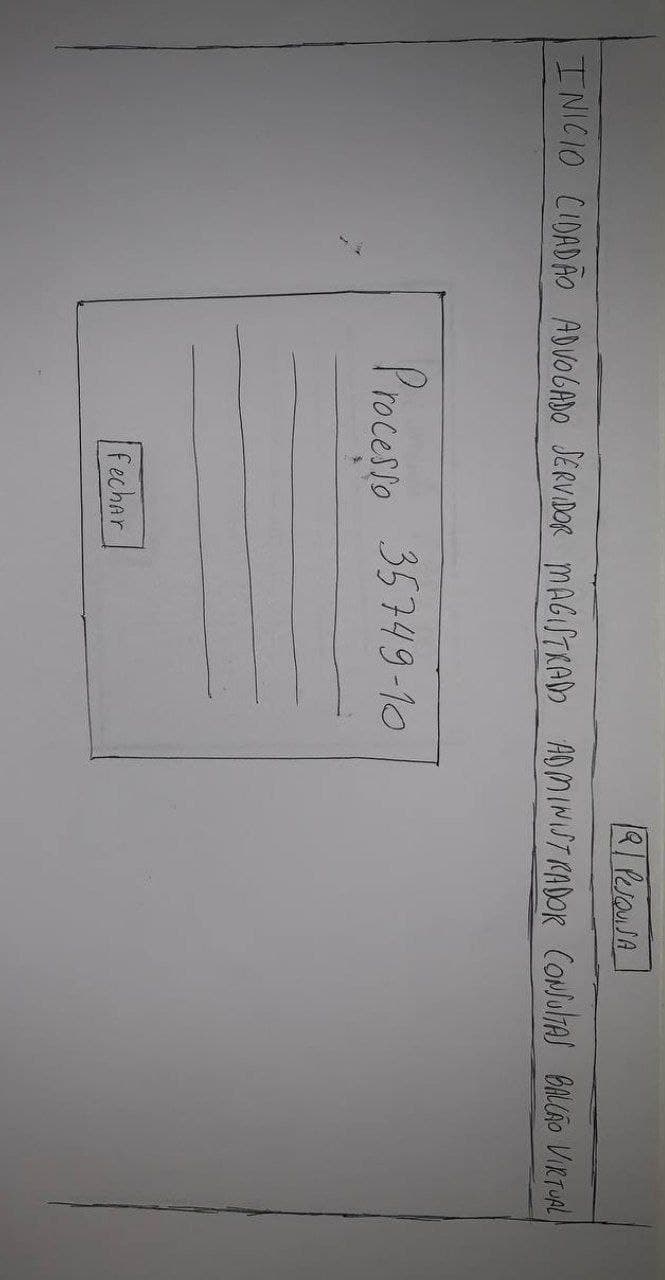 Pesquisa
INICIO CIDADÃO ADVOGADO SERVIDOR MAGISTRADO ADMINISTRADOR CONSULTAS BALCÃO VIRTUAL
Processo 35749-10
Fechar